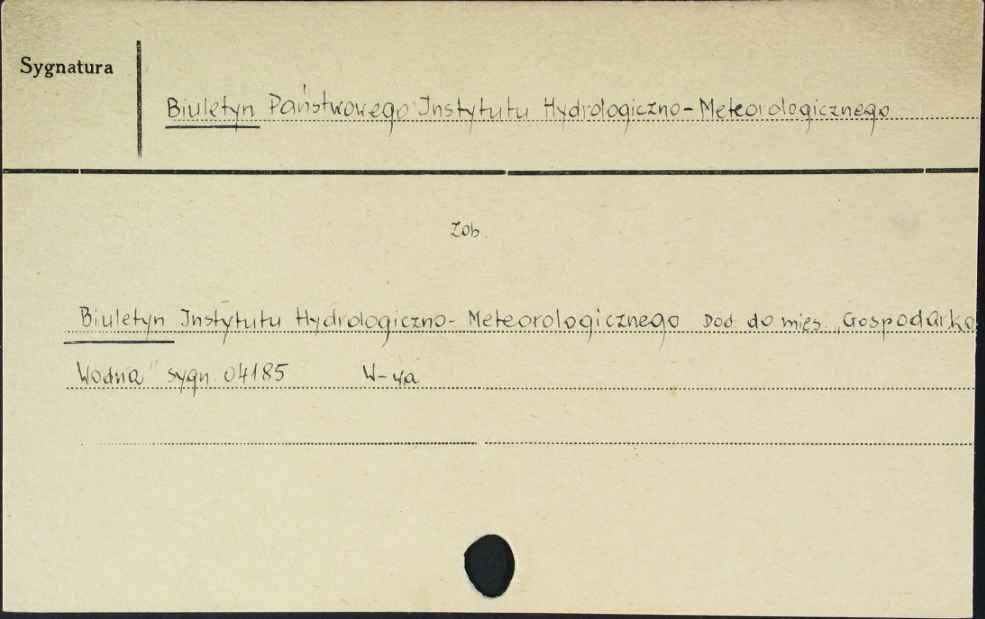 Sygnatura
Biuletyn Państwowego Instytutu Hydrologiczno-Meteorologicznego
Zob.
Biuletyn Instytutu Hydrologiczno-Meteorologicznego Dod do mies. „Gospodarka
Wodna" sygn. 04185 W-wa